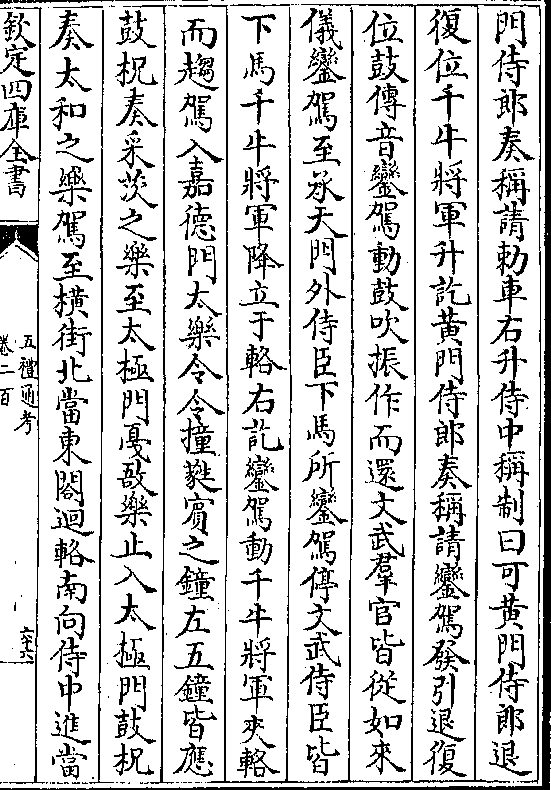 門侍郎奏稱請勅車右升侍中稱制曰可黃門侍郎退
復位千牛將軍升訖黃門侍郎奏稱請鑾駕發引退復
位鼓傳音鑾駕動鼓吹振作而還文武羣官皆從如來
儀鑾駕至承天門外侍臣下馬所鑾駕停文武侍臣皆
下馬千牛將軍降立于輅右訖鑾駕動千牛將軍夾輅
而趨駕入嘉德門太樂令令撞蕤賓之鐘左五鐘皆應
鼓柷奏采茨之樂至太極門戛敔樂止入太極門鼓柷
奏太和之樂駕至橫街北當東閣迴輅南向侍中進當
欽定四庫全書
五禮通考
卷二百
六十六